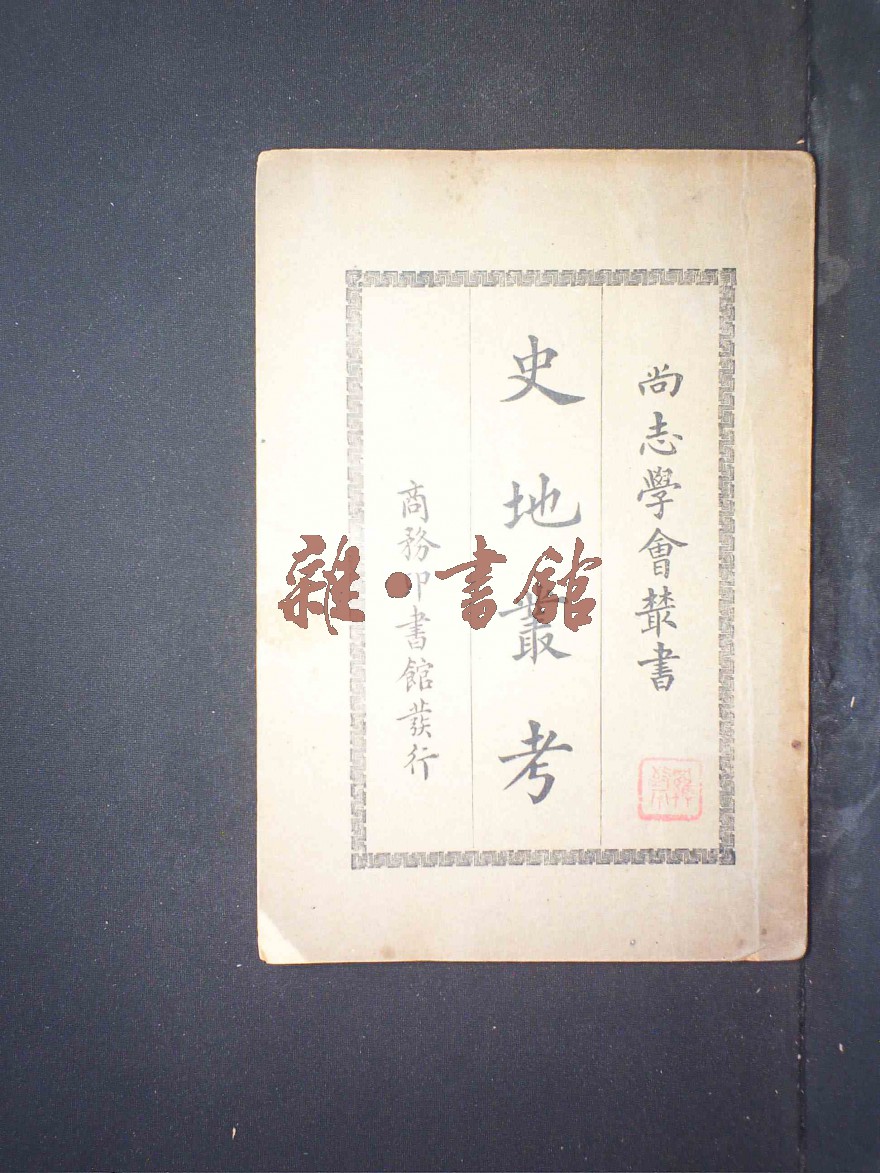 尚志學會叢書
史地叢考
商務印書館發行
雜·書館